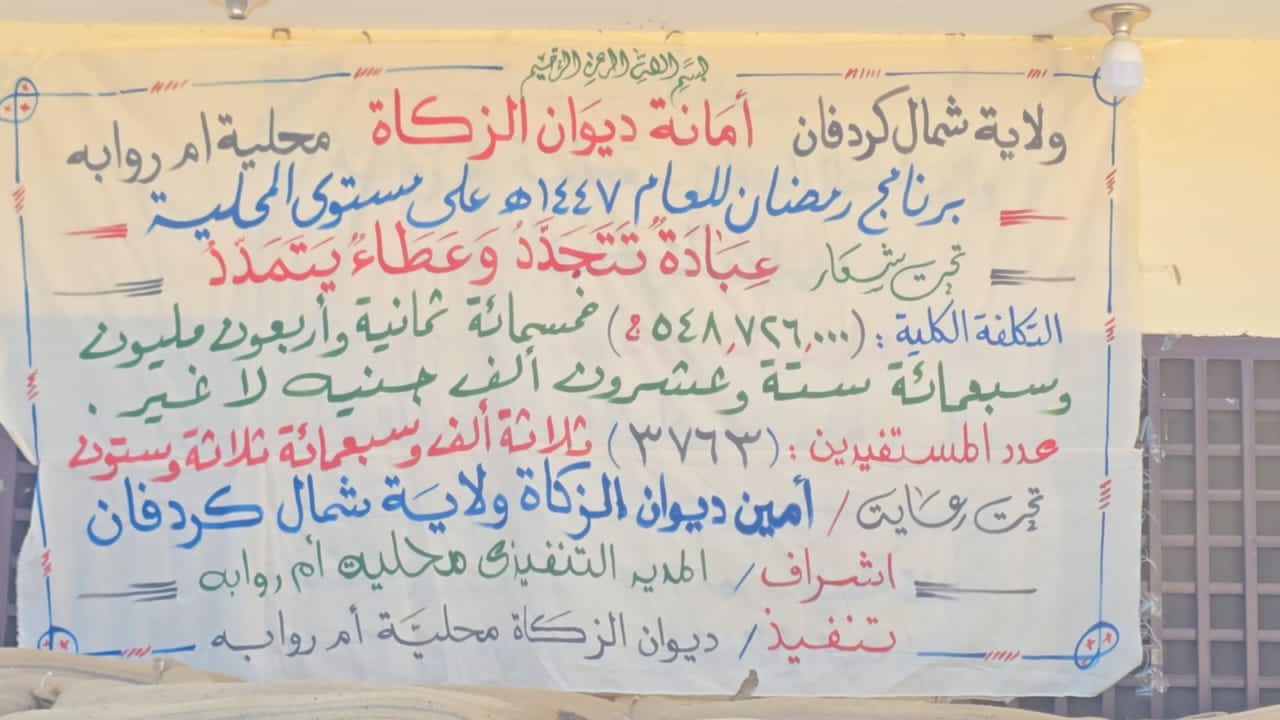 بسم الله الرحمن الرحيم
ولاية شمال كردفان أمَانة ديوَان الزكاة محلية ام روابه
برنامج رمضان للعام ١٤٤٧ھ على مستوى المحلية
تحت شِعَار عِبَادَةٌ تَتَجَدَّدُ وَعَطَاءٌ يَتَمَدَدُ
التكلفة الكلية : (٥٤٨,٧٢٦,٠٠٠ ج) خمسمائة ثمانية وأربعون مليون
وسبعمائة ستة وعشرون ألف جنيه لا غير .
عدد المستفيدين : (٣٧٦٣) ثلاثة ألف وسبعمائة ثلاثة وستون
تحت رعاية / أمين ديوان الزكاة ولايَة شمال كردفان
اشراف / المدير التنفيذى محليه أم روابه
تنفيذ / ديوان الزكاة محليَّة أم روابه